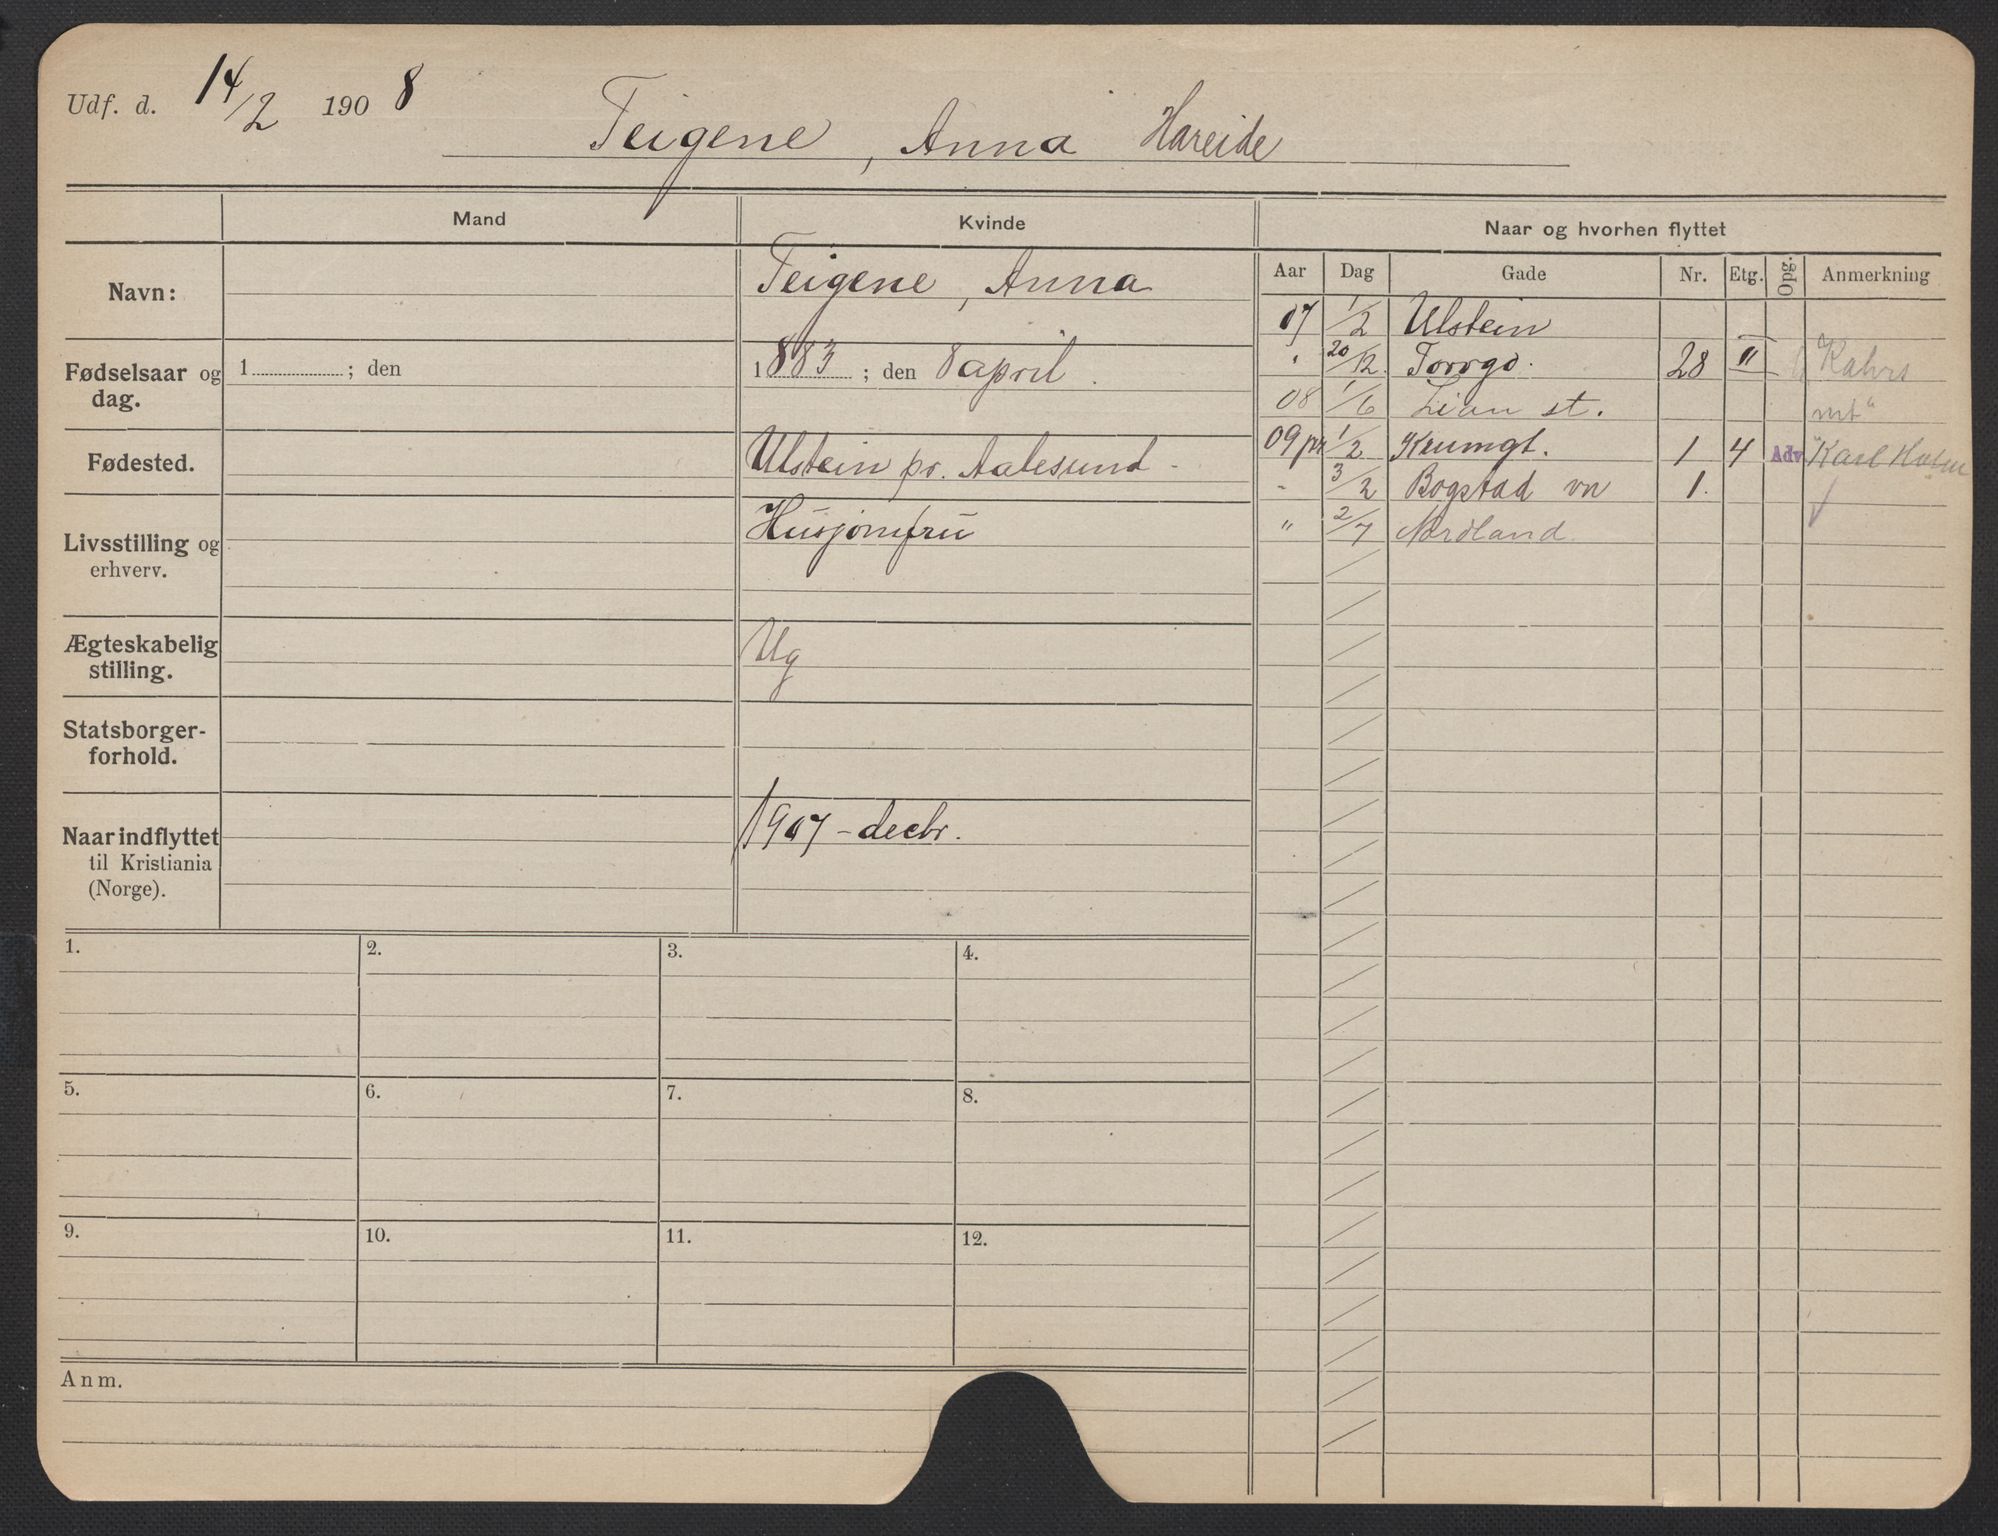 Udf. d. 14/2 1908
Teigene, Anna Hareide
Mand
Kvinde
Naar og hvorhen flyttet
Navn:
Teigene, Anna
Fødselsaar og dag.
1 ; den
1883 ; den 8 april.
Fødested.
Ulstein pr. Aalesund -
Livsstilling og erhverv.
Husjomfru
Ægteskabelig stilling.
Ug
Statsborger-
forhold.
Naar indflyttet
til Kristiania
(Norge).
1907 - decbr.
Aar Dag Gade Nr. Etg. Opg. Anmerkning
07 1/2 Ulstein
" 20/12 Torvgd. 28 II Kahrs
08 1/6 Lian st.
09 pr 1/2 Keumgt. 1 4 Adv "Karl Holm
- 3/2 Bogstad vn 1.
" 2/7 Nordland
1. 2. 3. 4.
5. 6. 7. 8.
9. 10. 11. 12.
Anm.